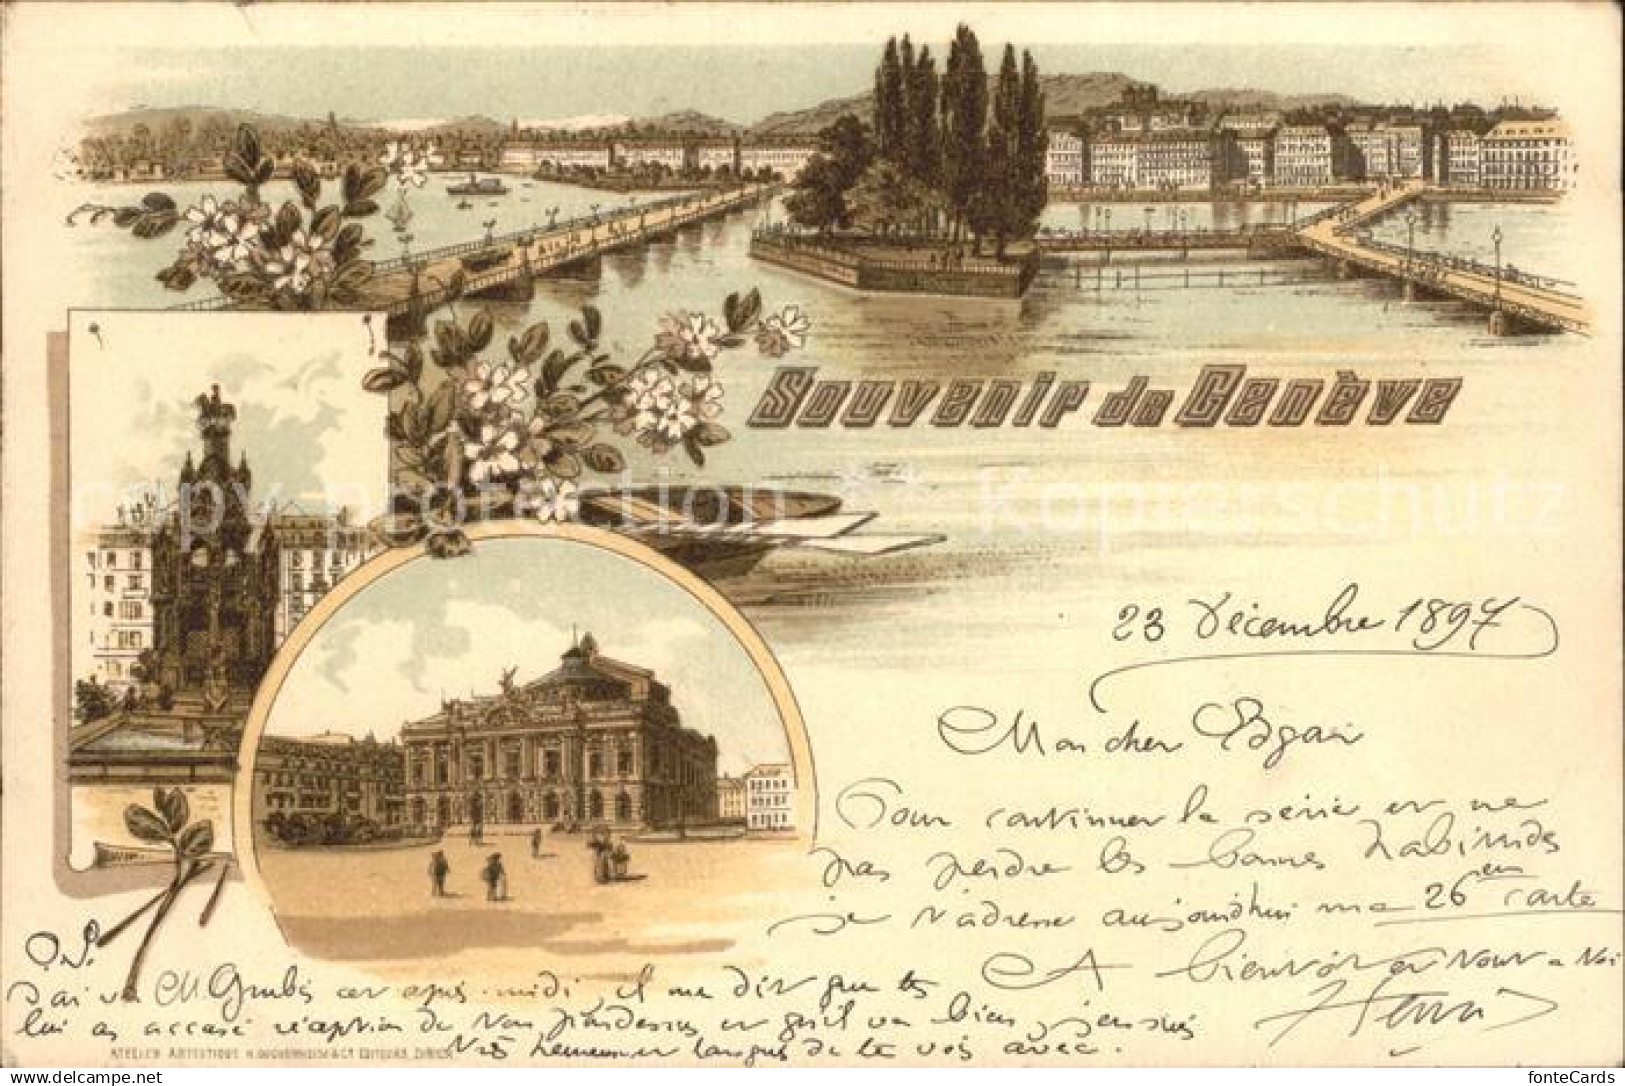 Souvenir de Genève
copy protection ** Kopierschutz
23 Décembre 1897
Mon cher Edgar
Pour continuer la série et ne
pas perdre les bonnes habitudes
je t'adresse aujourd'hui ma 26em carte
A bientôt et tout à toi
Henri
P.S.
J'ai vu M. Grubis cet après-midi, il me dit que tu
lui as accusé réception de et qu'il va bien, j'en suis
très heureux langues de te voir avec.
ATELIER ARTISTIQUE H. GUGGENHEIM & Co EDITEURS, ZURICH
www.delcampe.net
fonteCards